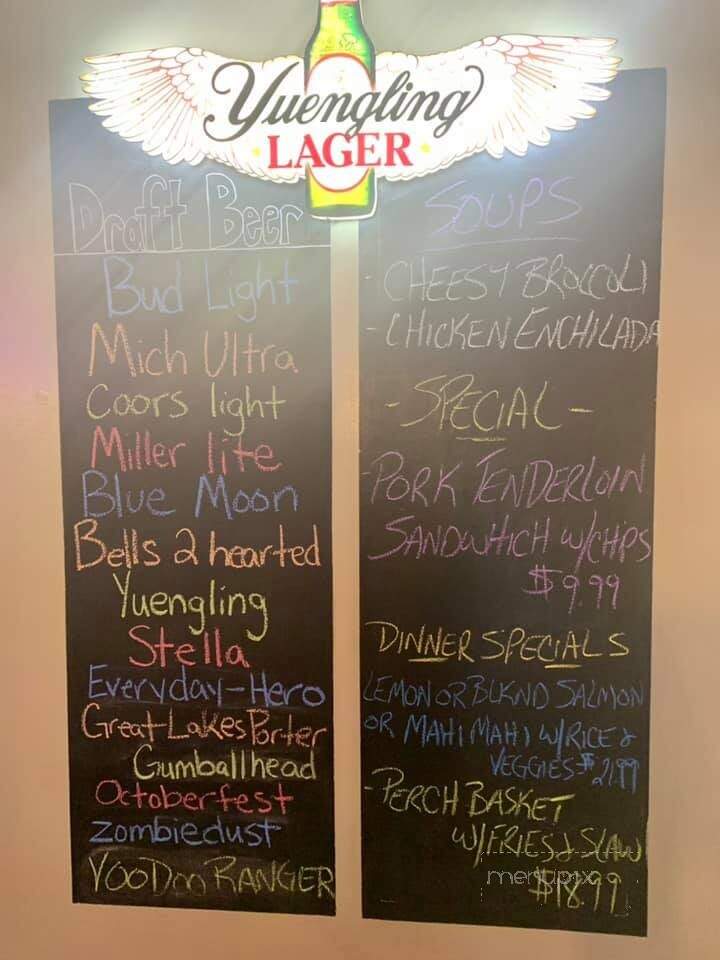 Yuengling
LAGER
Draft Beer
Bud Light
Mich Ultra
Coors light
Miller lite
Blue Moon
Bells 2 hearted
Yuengling
Stella
Everyday-Hero
Great Lakes Porter
Gumballhead
Octoberfest
zombiedust
VOODOO RANGER
SOUPS
- CHEESY BROCCOLI
- CHICKEN ENCHILADA
- SPECIAL -
- PORK TENDERLOIN
SANDWHICH W/CHPS
$9.99
DINNER SPECIALS
LEMON OR BLKND SALMON
OR MAHI MAHI W/RICE &
VEGGIES $21.99
- PERCH BASKET
W/FRIES & SLAW
$18.99
menupix